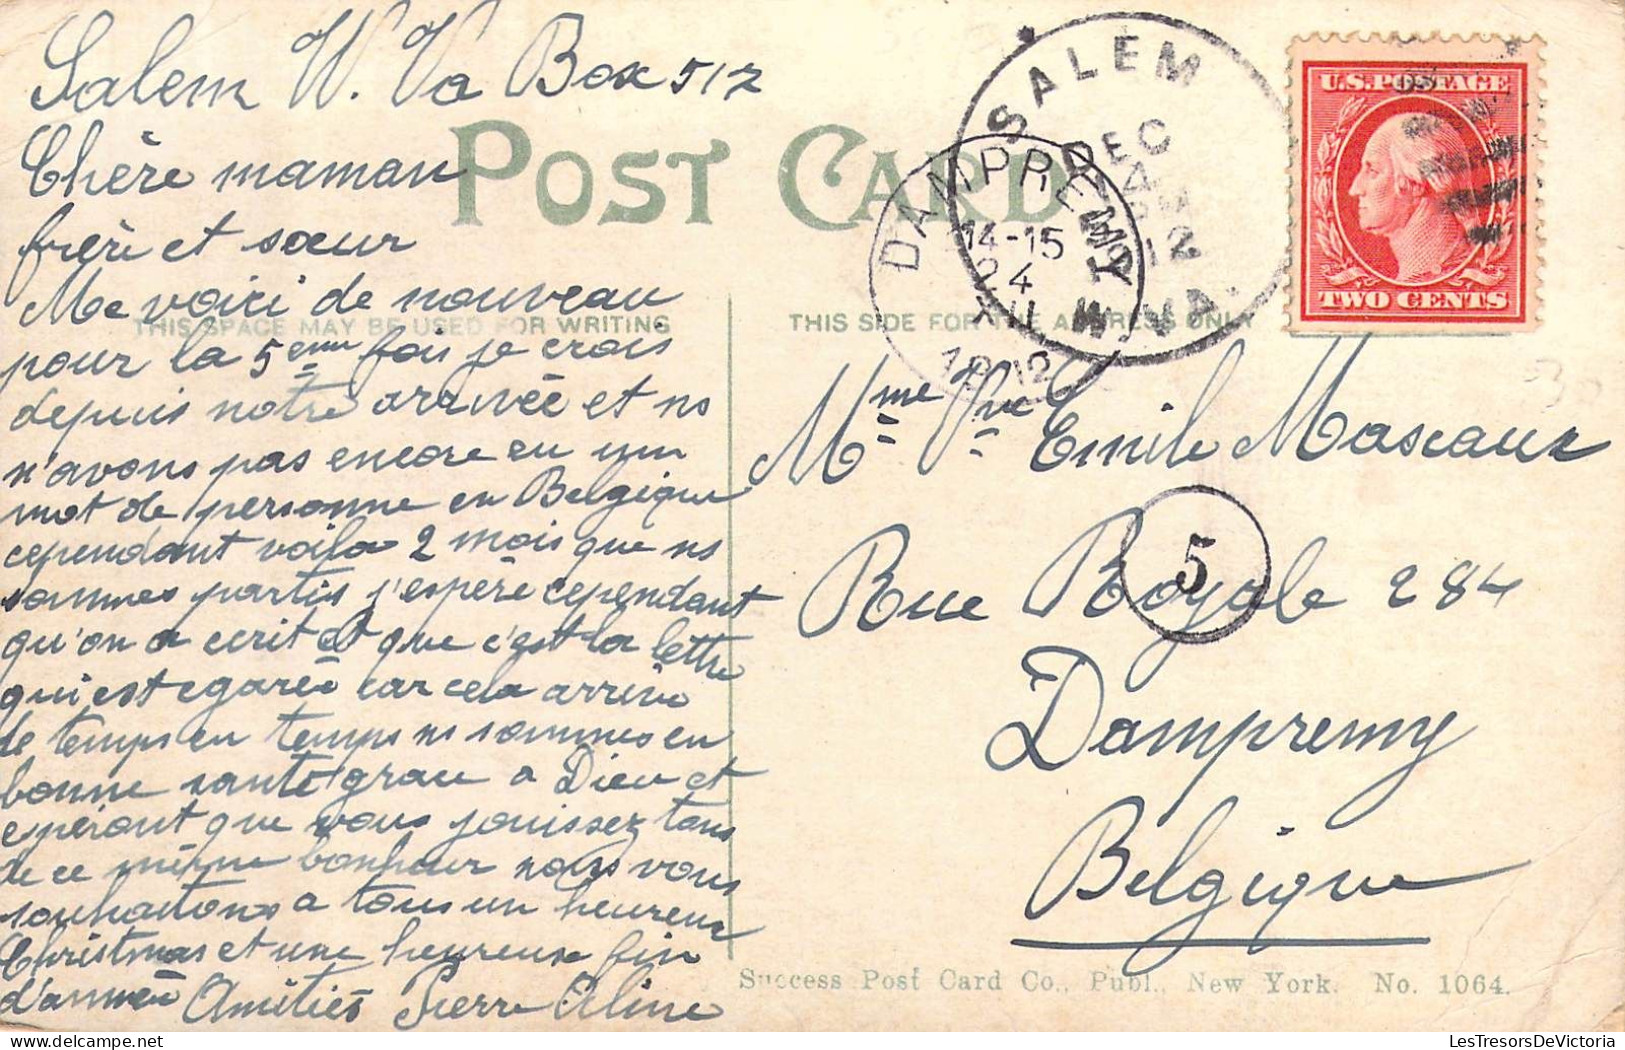 Salem W. Va Box 517
POST CARD
Chère maman
frère et sœur
Me voici de nouveau
THIS SPACE MAY BE USED FOR WRITING
pour la 5eme fois je crois
depuis notre arrivée et ns
n'avons pas encore eu un
mot de personne en Belgique
cependant voila 2 mois que ns
sommes partis j'espère cependant
qu'on a ecrit et que c'est la lettre
qui est egarée car cela arrive
de temps en temps ns sommes en
bonne santé grace a Dieu et
epérant que vous jouissez tous
de ce même bonheur nous vous
souhaitons a tous un heureux
Christmas et une heureuse fin
d'année Amitiés Pierre Aline
SALEM
DEC
4
12
W. VA.
DAMPREMY
14-15
24
XII
1912
U.S. POSTAGE
TWO CENTS
THIS SIDE FOR THE ADDRESS ONLY
Mme Vve Emile Mascaux
5
Rue Royale 284
Dampremy
Belgique
Success Post Card Co., Publ., New York. No. 1064.
LesTresorsDeVictoria.com